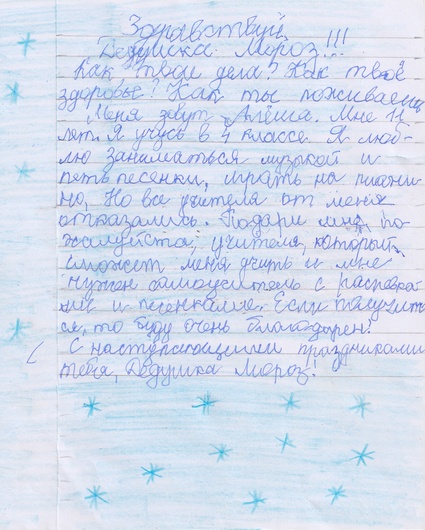 Здравствуй,
Дедушка Мороз!!!
Как твои дела? Как твоё
здоровье? Как ты поживаешь
Меня зовут Алёша. Мне 11
лет. Я учусь в 4 классе. Я люб-
лю заниматься музыкой и
петь песенки, играть на пиани-
но, Но все учителя от меня
отказались. Подари мне, по-
жалуйста, учителя, который
сможет меня учить и мне
нужен самоучитель с
и песенками. Если получит-
ся, то буду очень благодарен!
С наступающими праздниками
тебя, Дедушка Мороз!